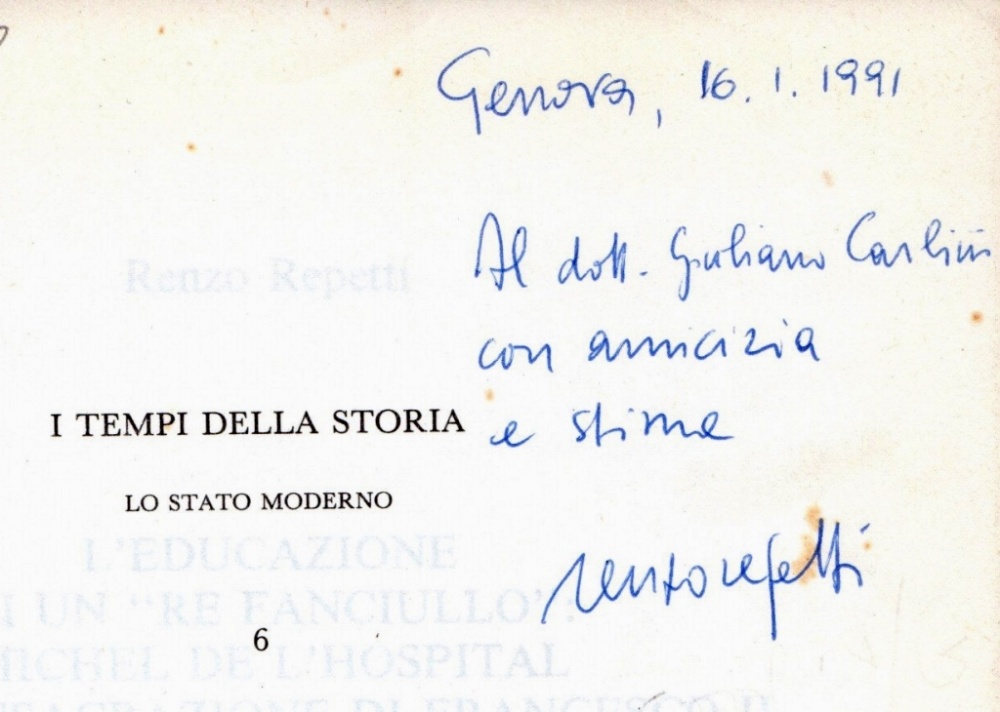 Genova, 16.1.1991
Al dott. Giuliano Carlini
con amicizia
e stima
renzo repetti
Renzo Repetti
I TEMPI DELLA STORIA
LO STATO MODERNO
6
L'EDUCAZIONE
DI UN "RE FANCIULLO":
MICHEL DE L'HOSPITAL
DI FRANCESCO II